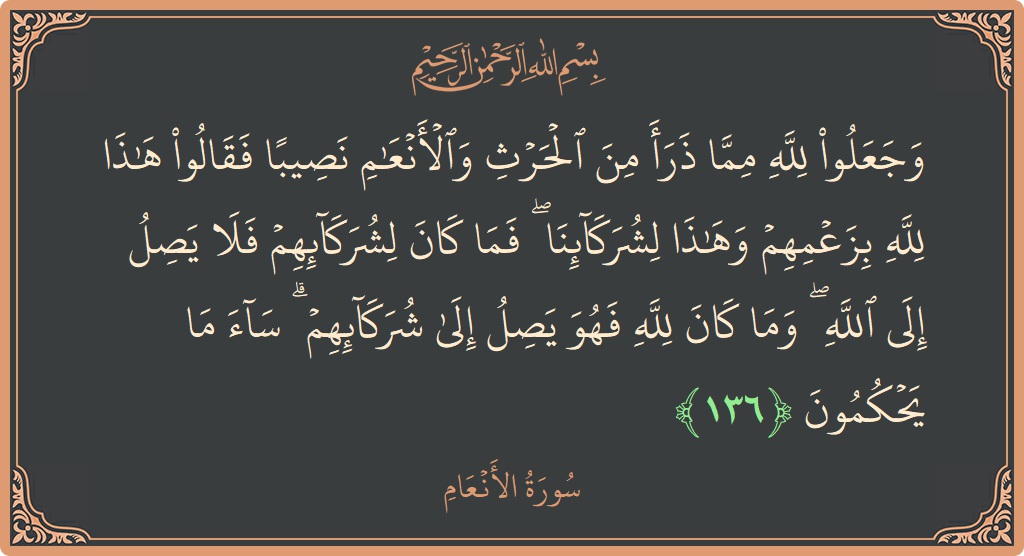 بِسْمِ ٱللَّهِ ٱلرَّحْمَٰنِ ٱلرَّحِيمِ
وَجَعَلُوا۟ لِلَّهِ مِمَّا ذَرَأَ مِنَ ٱلْحَرْثِ وَٱلْأَنْعَٰمِ نَصِيبًا فَقَالُوا۟ هَٰذَا
لِلَّهِ بِزَعْمِهِمْ وَهَٰذَا لِشُرَكَآئِنَا ۖ فَمَا كَانَ لِشُرَكَآئِهِمْ فَلَا يَصِلُ
إِلَى ٱللَّهِ ۖ وَمَا كَانَ لِلَّهِ فَهُوَ يَصِلُ إِلَىٰ شُرَكَآئِهِمْ ۗ سَآءَ مَا
يَحْكُمُونَ ﴿١٣٦﴾
سُورَةُ الأَنْعَامِ